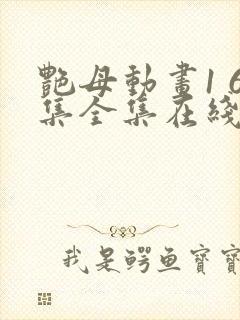 艷母動畫1 6
集全集在綫
我是鳄鱼寶寶